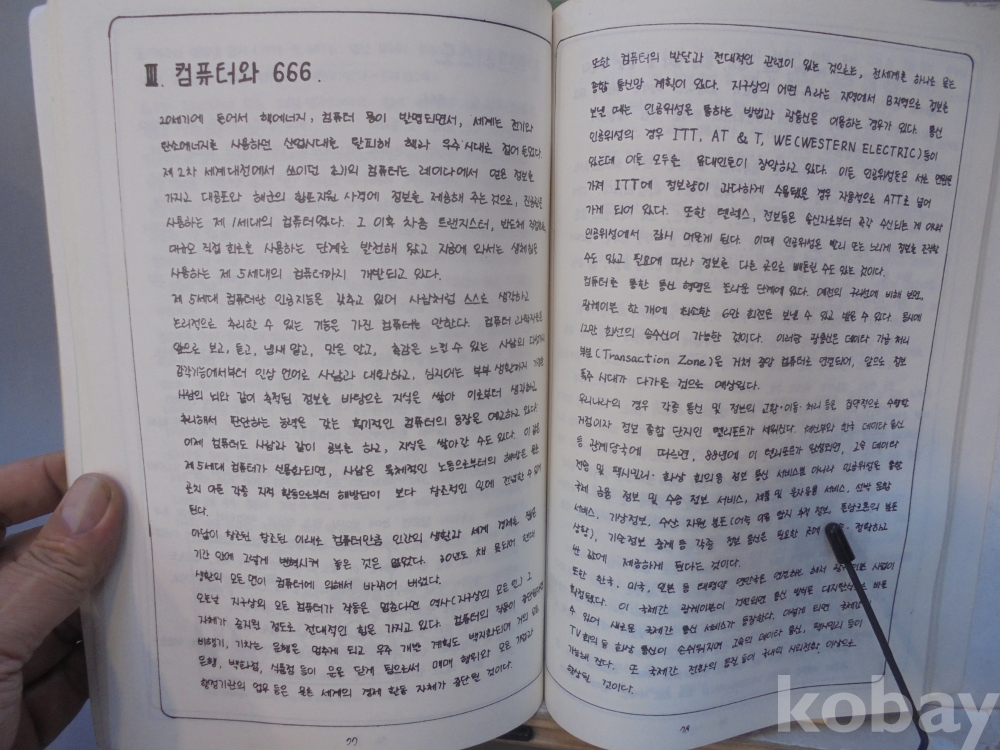 Ⅲ. 컴퓨터와 666.
20세기에 들어서 핵에너지, 컴퓨터 등이 발명되면서, 세계는 전기와
탄소에너지를 사용하던 산업시대를 탈피해 핵과 우주시대로 접어 들었다.
제 2차 세계대전에서 쓰이던 초기의 컴퓨터는 레이다에서 얻은 정보를
가지고 대공포와 해군의 함포지원 사격에 정보를 제공해 주는 것으로, 진공관을
사용하는 제 1세대의 컴퓨터였다. 그 이후 차츰 트랜지스터, 반도체
직접 회로를 사용하는 단계로 발전해 왔고 지금에 와서는
사용하는 제 5세대의 컴퓨터까지 개발되고 있다.
제 5세대 컴퓨터란 인공지능을 갖추고 있어 사람처럼 스스로 생각하고
논리적으로 추리할 수 있는 기능을 가진 컴퓨터를 말한다. 컴퓨터 과학자들은
앞으로 보고, 듣고, 냄새 맡고, 맛을 알고, 촉감을 느낄 수 있는 사람의
감각기능에서부터 인상 언어로 사람과 대화하고, 심지어는 부부 생활까지
사람의 뇌와 같이 축적된 정보를 바탕으로 지식을 쌓아 이로부터 생각하고
추리해서 판단하는 능력을 갖는 획기적인 컴퓨터의 등장을 예고하고 있다.
이제 컴퓨터도 사람과 같이 공부를 하고, 지식을 쌓아갈 수도 있다. 이 같은
제 5세대 컴퓨터가 실용화되면, 사람은 육체적인 노동으로부터의 해방은 물
론이지 아픈 각종 지적 활동으로부터 해방되어 보다 창조적인 일에 전념할 수 있게
된다.
아담이 창조된 이래로 컴퓨터만큼 인간의 생활과 세계 경제를 짧은
기간 안에 그렇게 변혁시켜 놓은 것은 없었다. 30년도 채 못되어 현대
생활의 모든 면이 컴퓨터에 의해서 바뀌어 버렸다.
오늘날 지구상의 모든 컴퓨터가 작동을 멈춘다면 역사(지구상의 모든 일) 그
자체가 중지될 정도로 전대적인 힘을 가지고 있다. 컴퓨터의 작동이 중단된다면
비행기, 기차는 운행을 멈추게 되고 우주 개발 계획도 백지화되며 거의 모든
은행, 백화점, 식품점 등이 문을 닫게 됨으로써 매매 행위와 모든 기업과
행정기관의 업무 등은 물론 세계의 경제 활동 자체가 중단될 것이다.
27
또한 컴퓨터의 발달과 전대적인 관련이 있는 것으로는, 전세계를 하나로 묶는
종합 통신망 계획이 있다. 지구상의 어떤 A라는 지역에서 B지역으로 정보를
보낼 때는 인공위성을 통하는 방법과 광통신을 이용하는 경우가 있다. 통신
인공위성의 경우 ITT, AT & T, WE(WESTERN ELECTRIC)등이
있는데 이들 모두를 유대인들이 장악하고 있다. 이들 인공위성들은 서로 연결
가져 ITT에 정보량이 과다하게 수용됐을 경우 자동적으로 ATT로 넘어
가게 되어 있다. 또한 텔렉스, 정보등은 송신자로부터 즉각 수신되는 게 아니라
인공위성에서 잠시 머물게 된다. 이때 인공위성은 빨리 또는 느리게 정보를
수도 있고 필요에 따라 정보를 다른 곳으로 빼돌릴 수도 있는 것이다.
컴퓨터를 통한 통신 혁명은 놀라운 단계에 있다. 예전의 구내선에 비해 보면,
광케이블 한 개에 최소한 6만 회전을 보낼 수 있고 받을 수 있다. 동시에
12만 회선의 송수신이 가능한 것이다. 이러한 광통신은 데이타 가공 처리
부분(Transaction Zone)을 거쳐 중앙 컴퓨터로 연결되어, 앞으로 정보
폭주 시대가 다가올 것으로 예상된다.
우리나라의 경우 각종 통신 및 정보의 교환·이동·처리 등을 집약적으로 수행할
거점이자 정보 종합 단지인 텔리포트가 세워진다. 체신부와 한국 데이타 통신
등 관계당국에 따르면, 89년에 이 텔리포트가 완성되면, 고속 데이타
전송 및 팩시밀리·화상 회의용 정보 통신 서비스뿐 아니라 인공위성을 통한
국제 금융 정보 및 수송 정보 서비스, 제품 및 문자응용 서비스, 선박 운항
서비스, 기상정보, 수산 자원 분포(어족 이동 탐지 추적 정보,
상황), 기술정보 중계 등 각종 정보 통신을 필요한 곳에 정확하고
싼 값에 제공하게 된다는 것이다.
또한 한국, 미국, 일본 등 태평양 연안국을 연결하는 해저 광케이블 사업이
확정됐다. 이 국제간 광케이블이 건설되면 통신 방식도 대지털식으로 바꿀
수 있어 새로운 국제간 통신 서비스가 등장한다. 이렇게 되면 국제간
TV회의 등 화상 통신이 손쉬워지며 고속의 데이타 통신, 팩시밀리 등이
가능해 진다. 또 국제간 전화의 음질 등이 국내의 시외전화 이상으로
향상될 것이다.
28
kobay